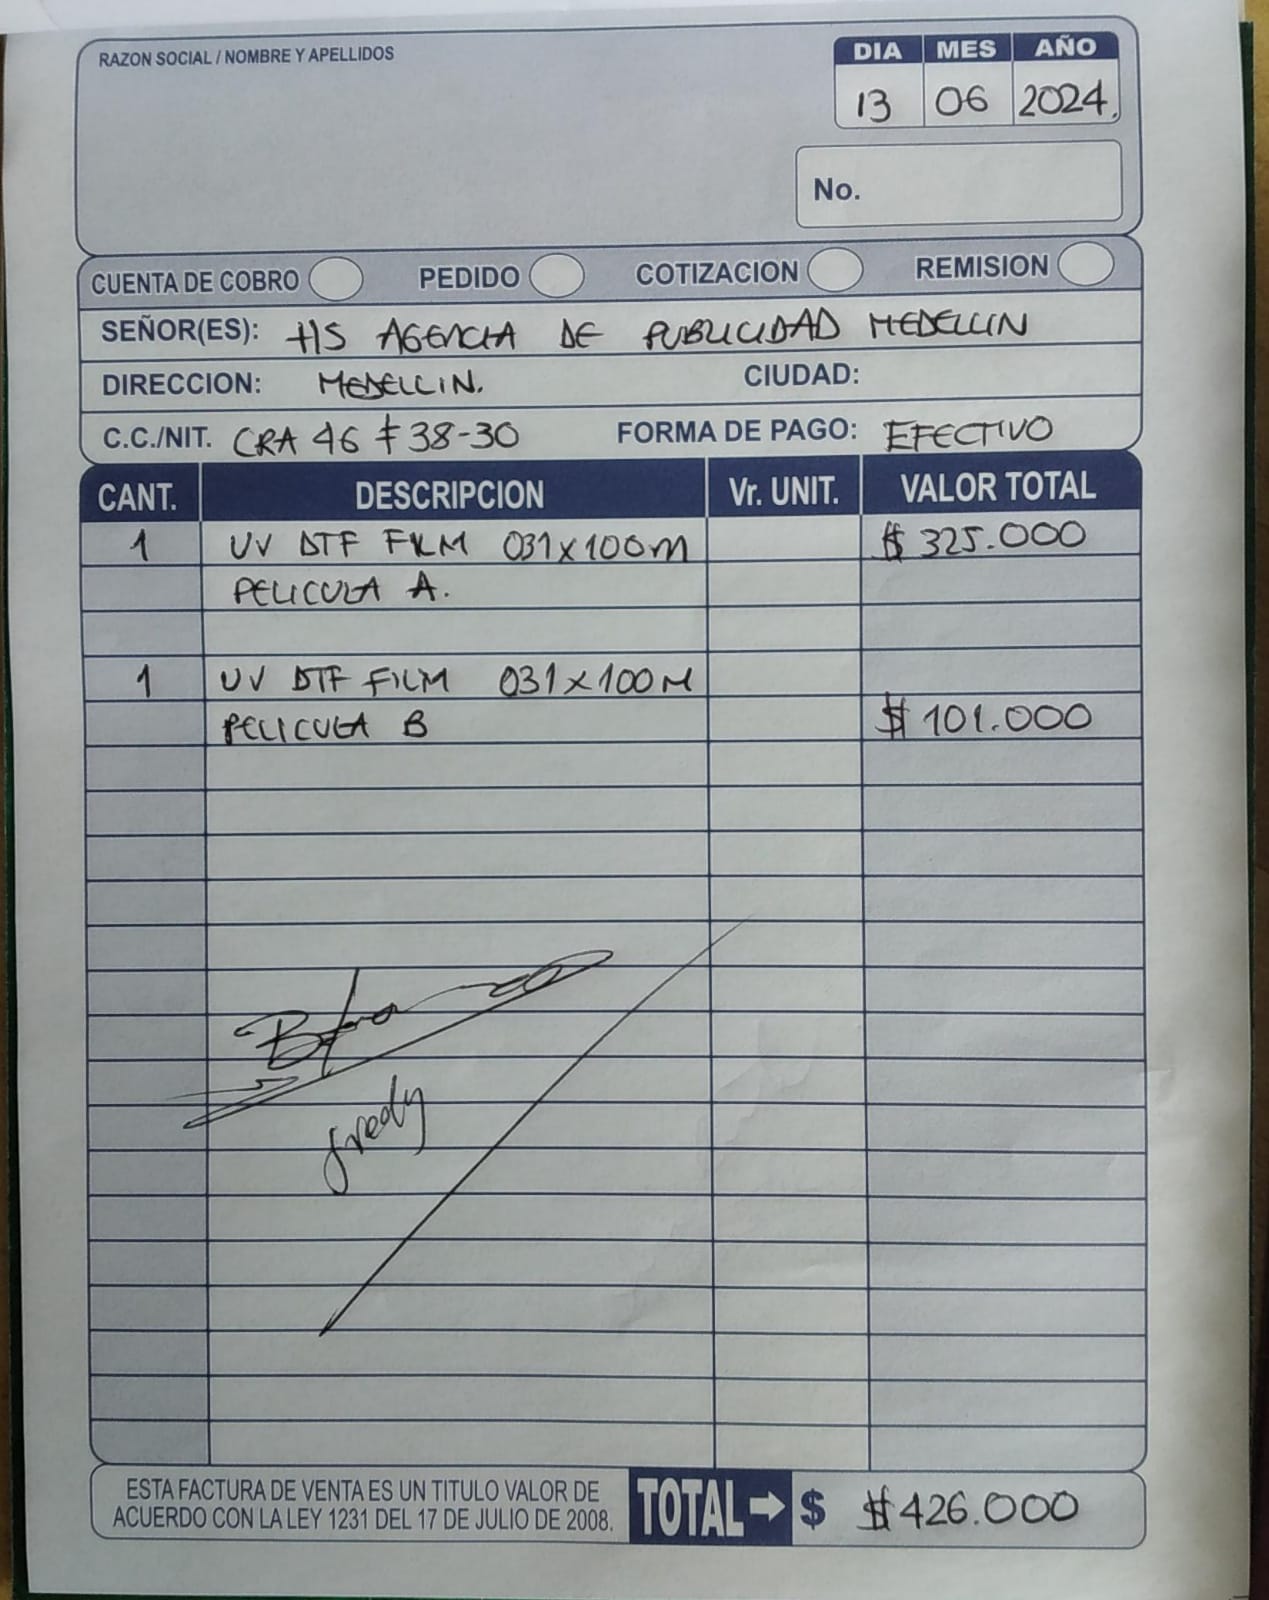 RAZON SOCIAL / NOMBRE Y APELLIDOS
DIA MES AÑO
13 06 2024.
No.
CUENTA DE COBRO PEDIDO COTIZACION REMISION
SEÑOR(ES): HS AGENCIA DE PUBLICIDAD MEDELLIN
DIRECCION: MEDELLIN. CIUDAD:
C.C./NIT. CRA 46 # 38-30 FORMA DE PAGO: EFECTIVO
CANT. DESCRIPCION Vr. UNIT. VALOR TOTAL
1 UV DTF FILM 031x100m $ 325.000
PELICULA A.
1 UV DTF FILM 031x100M
PELICULA B $ 101.000
fredy
ESTA FACTURA DE VENTA ES UN TITULO VALOR DE
ACUERDO CON LA LEY 1231 DEL 17 DE JULIO DE 2008.
TOTAL → $ $ 426.000